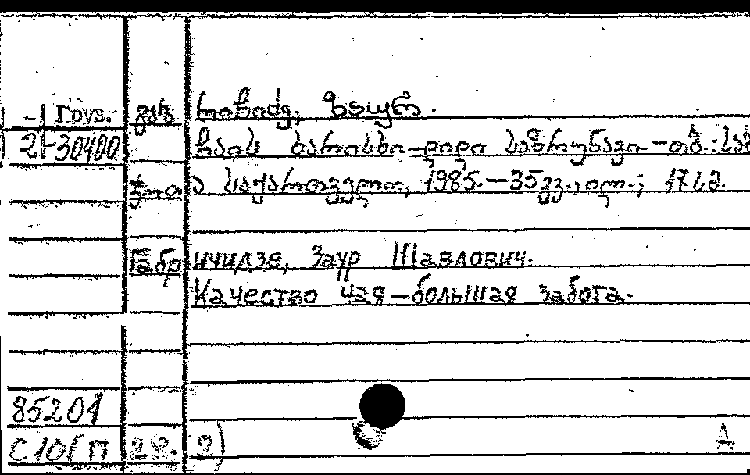 Груз. გაბრიჩიძე, ზაურ.
21-30400 ჩაის ხარისხი-დიდი საზრუნავი-თბ.:საბ
ჭოთა საქართველო, 1985.-35გვ.,ილ.; 17სმ.
Габричидзе, Заур Шавлович.
Качество чая-большая забота.
85204
С10ГП 29. 9)
А